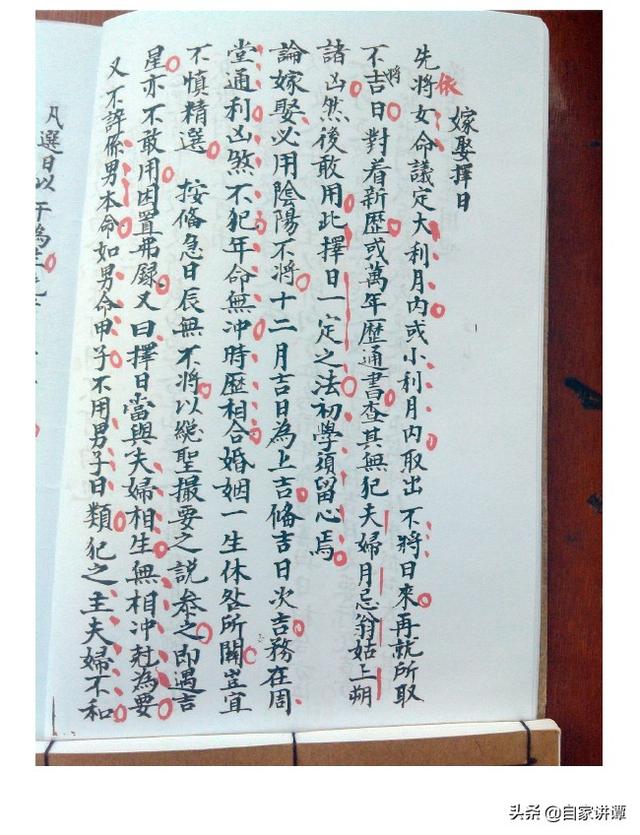 嫁娶擇日
依
先將女命議定大利月內或小利月內取出不將日來再就所取
將
不吉日對着新歷或萬年歷通書查其無犯夫婦月忌翁姑上朔
諸凶然後敢用此擇日一定之法初學須留心焉
論嫁娶必用陰陽不將十二月吉日為上吉俻吉日次吉務在周
堂通利凶煞不犯年命無冲時歷相合婚姻一生休咎所關豈宜
不慎精選 按俻急日辰無不將以總聖撮要之說參之即遇吉
星亦不敢用因置弗録又曰擇日當與夫婦相生無相冲尅為要
又不許係男本命如男命甲子不用男子日類犯之主夫婦不和
凡選日以干為
头条 @自家讲谭